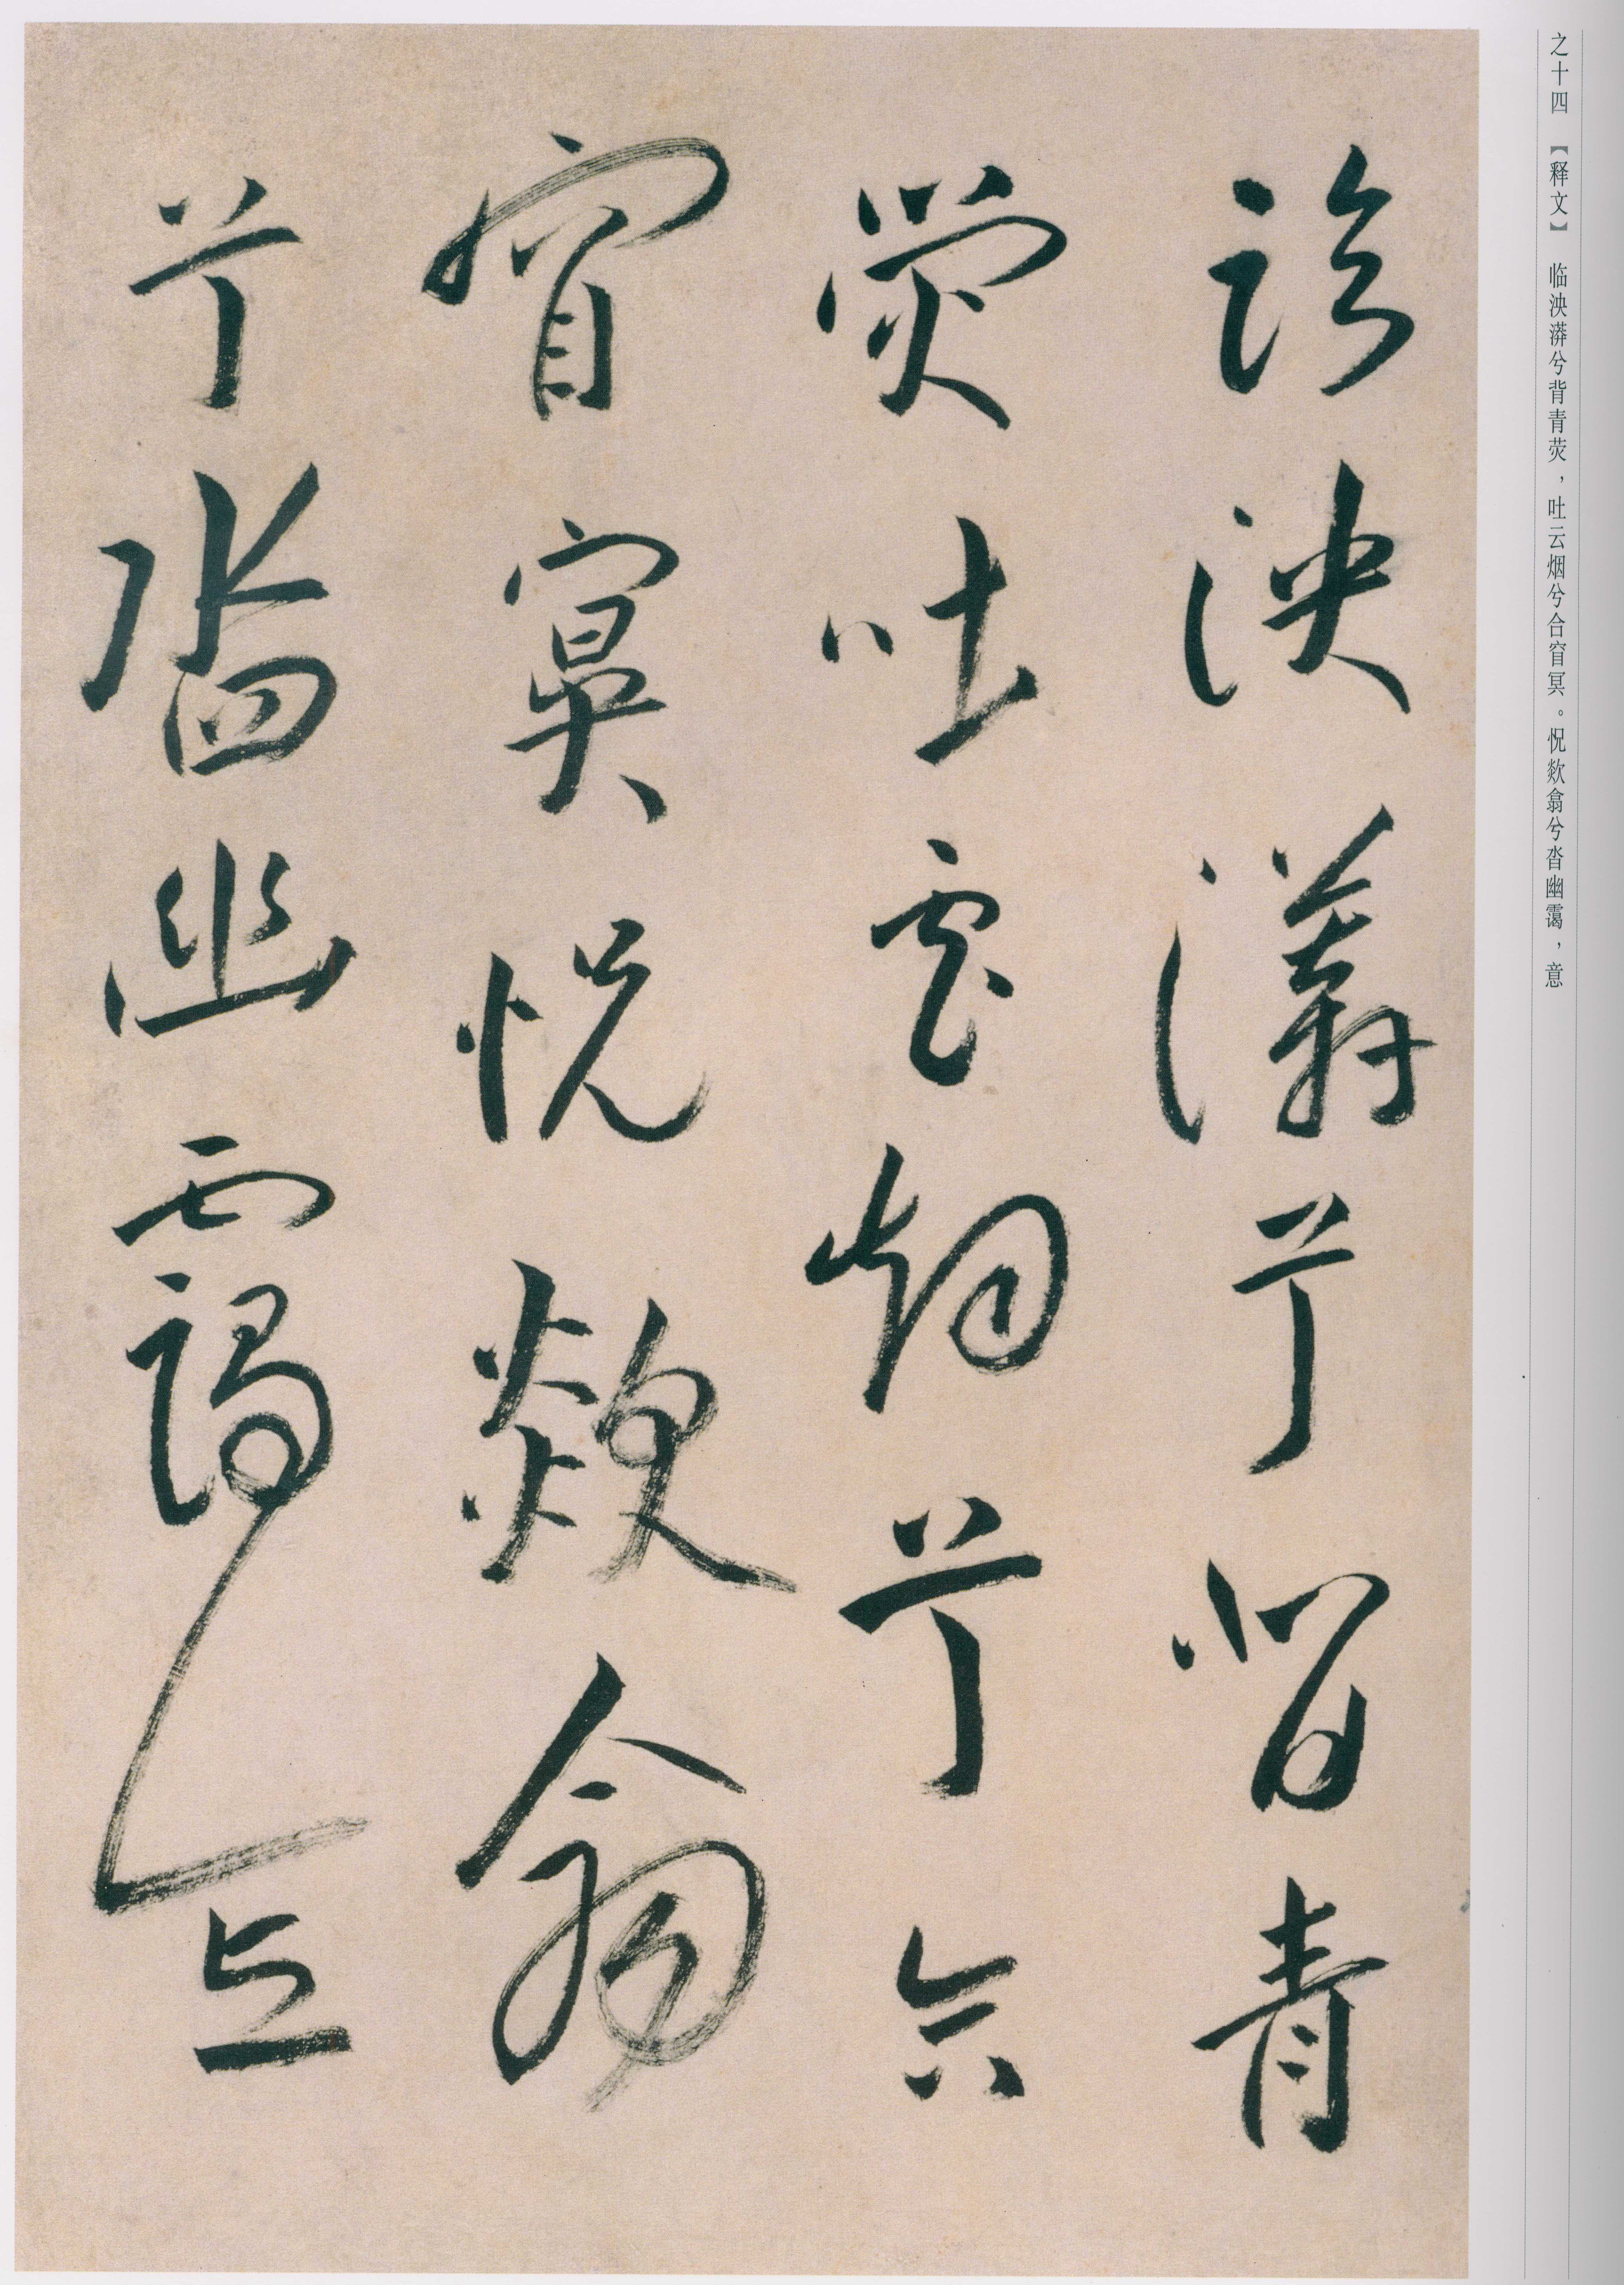 之十四 【释文】 临泱漭兮背青荧，吐云烟兮合窅冥。怳欻翕兮沓幽霭，意
臨泱漭兮背青
熒吐雲烟兮合
窅冥怳欻翕
兮沓幽靄意